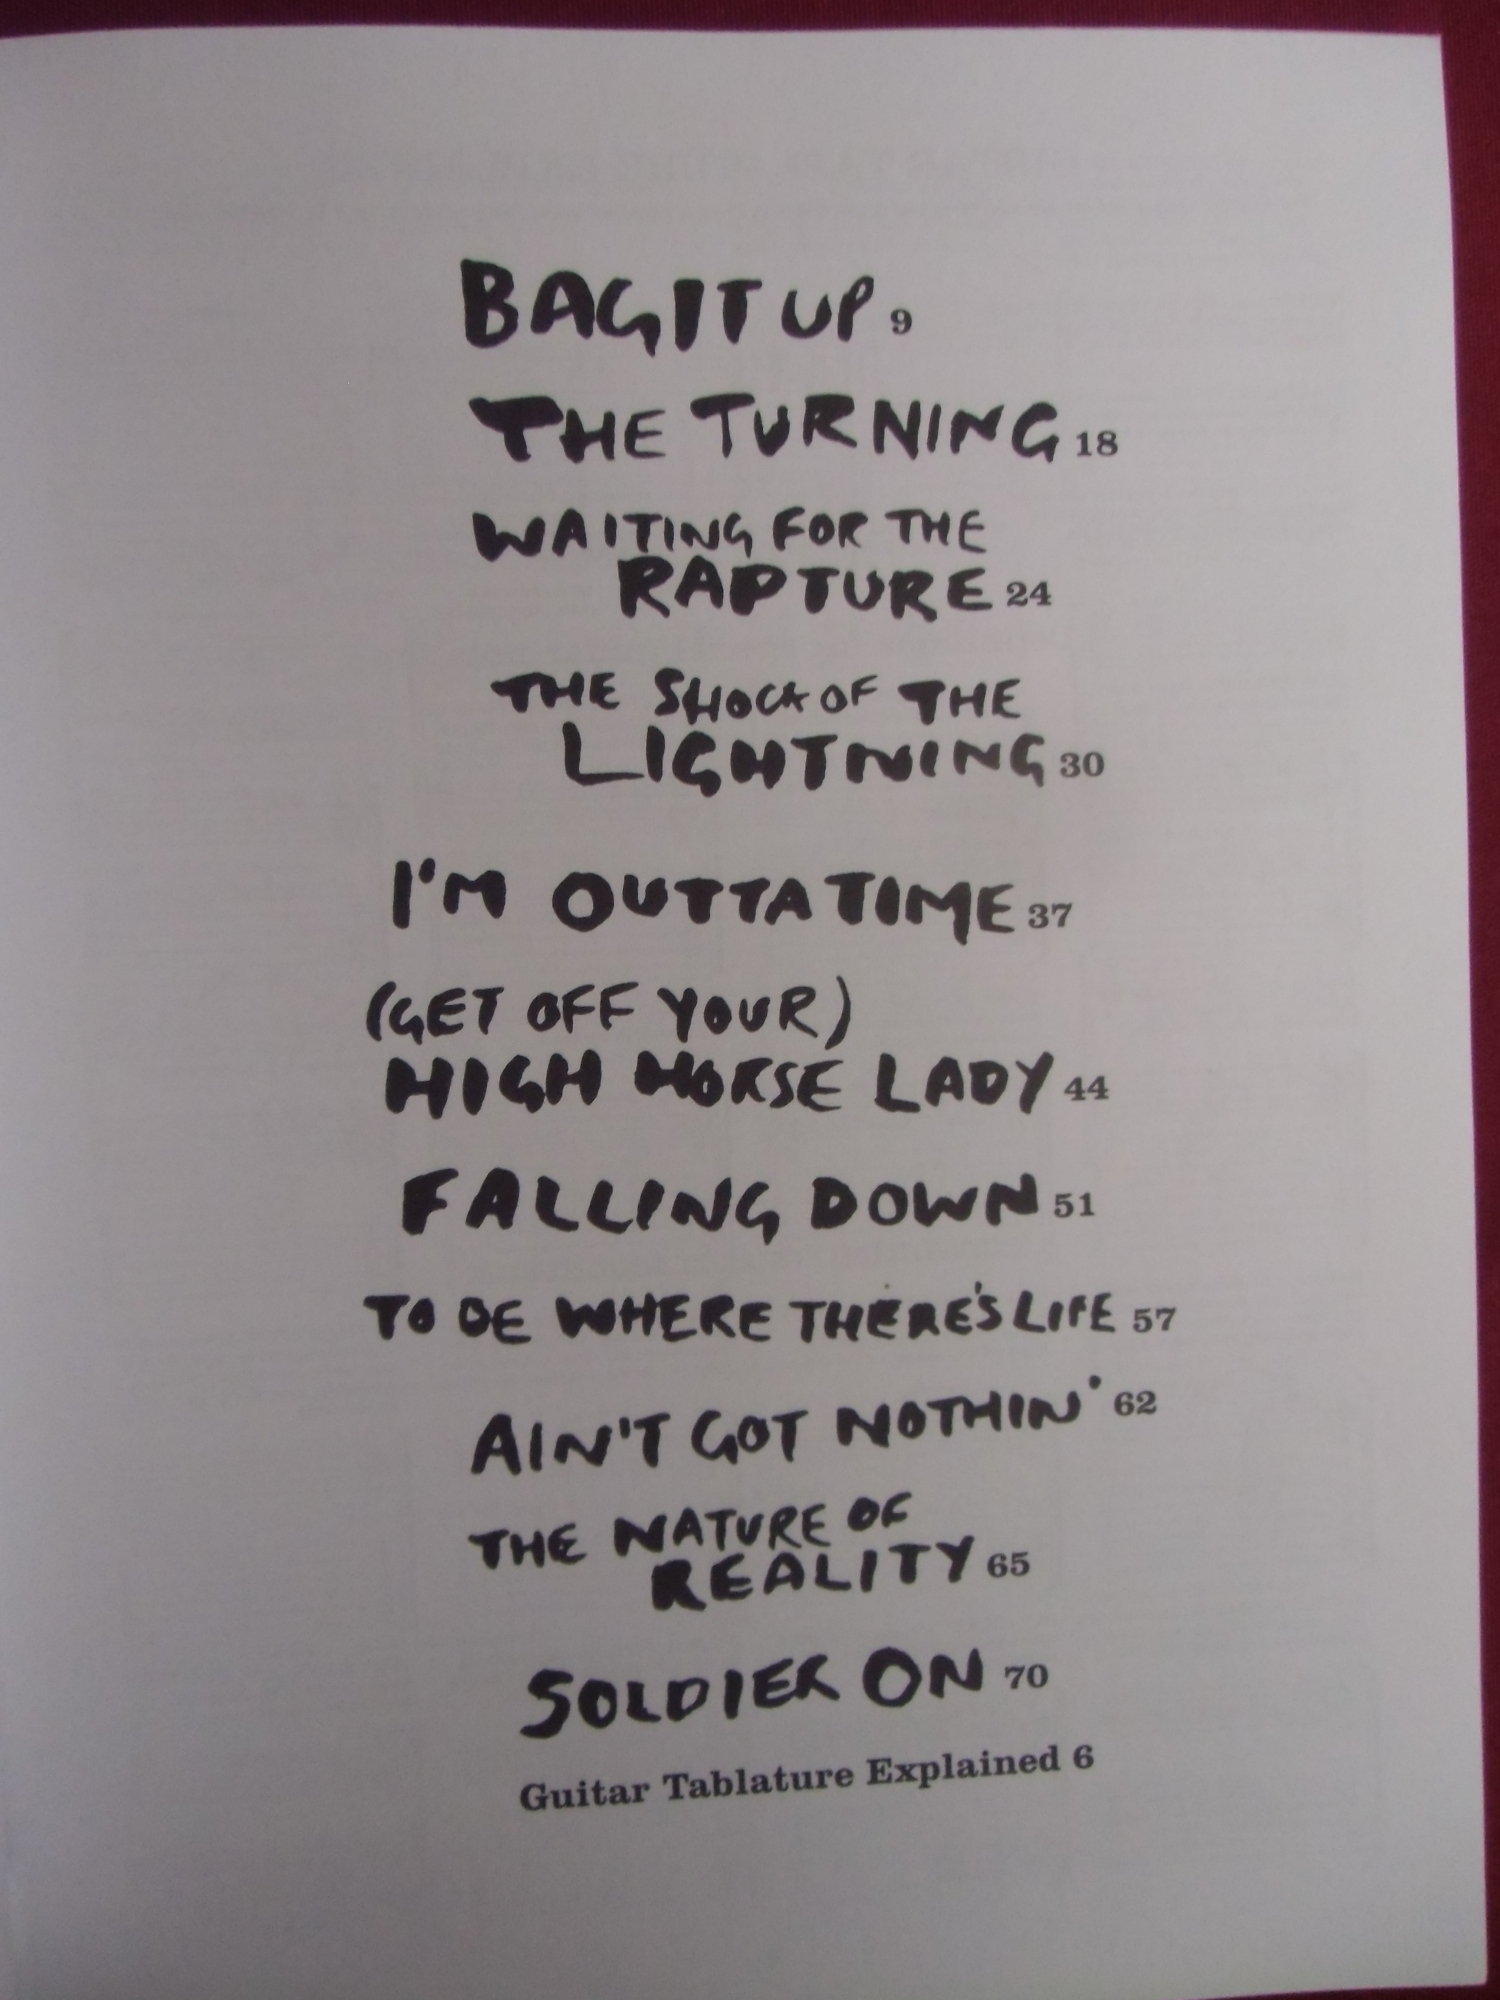 BAG IT UP 9
THE TURNING 18
WAITING FOR THE
RAPTURE 24
THE SHOCK OF THE
LIGHTNING 30
I'M OUTTA TIME 37
(GET OFF YOUR)
HIGH HORSE LADY 44
FALLING DOWN 51
TO BE WHERE THERE'S LIFE 57
AIN'T GOT NOTHIN' 62
THE NATURE OF
REALITY 65
SOLDIER ON 70
Guitar Tablature Explained 6